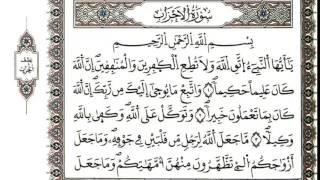 سُورَةُ الْأَحْزَابِ
بِسْمِ اللَّهِ الرَّحْمَٰنِ الرَّحِيمِ
يَٰأَيُّهَا النَّبِےءُ اتَّقِ اللَّهَ وَلَا تُطِعِ الْكَٰفِرِينَ وَالْمُنَٰفِقِينَۖ إِنَّ اللَّهَ
كَانَ عَلِيماً حَكِيماً ۝ وَاتَّبِعْ مَا يُوحَىٰ إِلَيْكَ مِن رَّبِّكَۖ إِنَّ اللَّهَ
كَانَ بِمَا تَعْمَلُونَ خَبِيراً ۝ وَتَوَكَّلْ عَلَى اللَّهِۖ وَكَفَىٰ بِاللَّهِ
وَكِيلاً ۝ مَّا جَعَلَ اللَّهُ لِرَجُلٍ مِّن قَلْبَيْنِ فِي جَوْفِهِۖ وَمَا جَعَلَ
أَزْوَٰجَكُمُ الَّٰے تَظَّهَّرُونَ مِنْهُنَّ أُمَّهَٰتِكُمْۖ وَمَا جَعَلَ